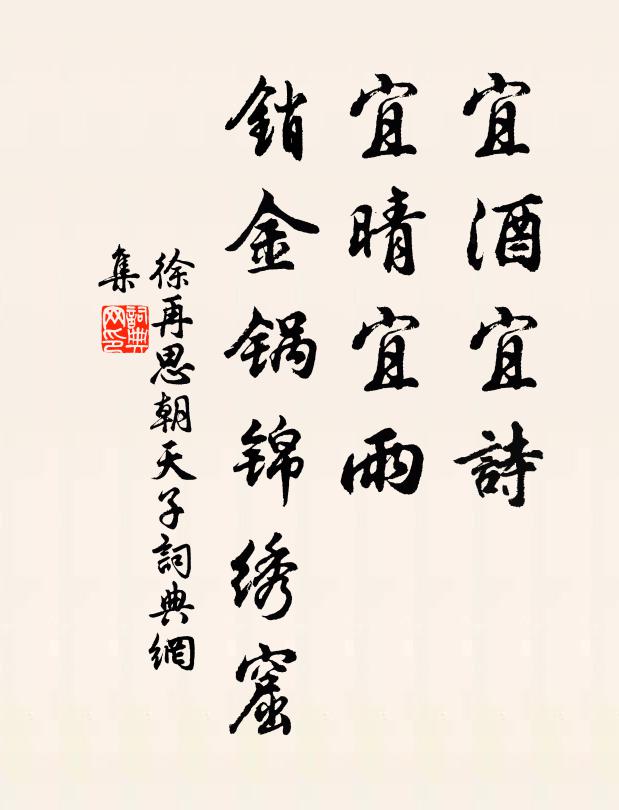 宜酒宜詩
宜晴宜雨
銷金锅锦绣窟
徐再思朝天子詞典網
集
詞典
网印